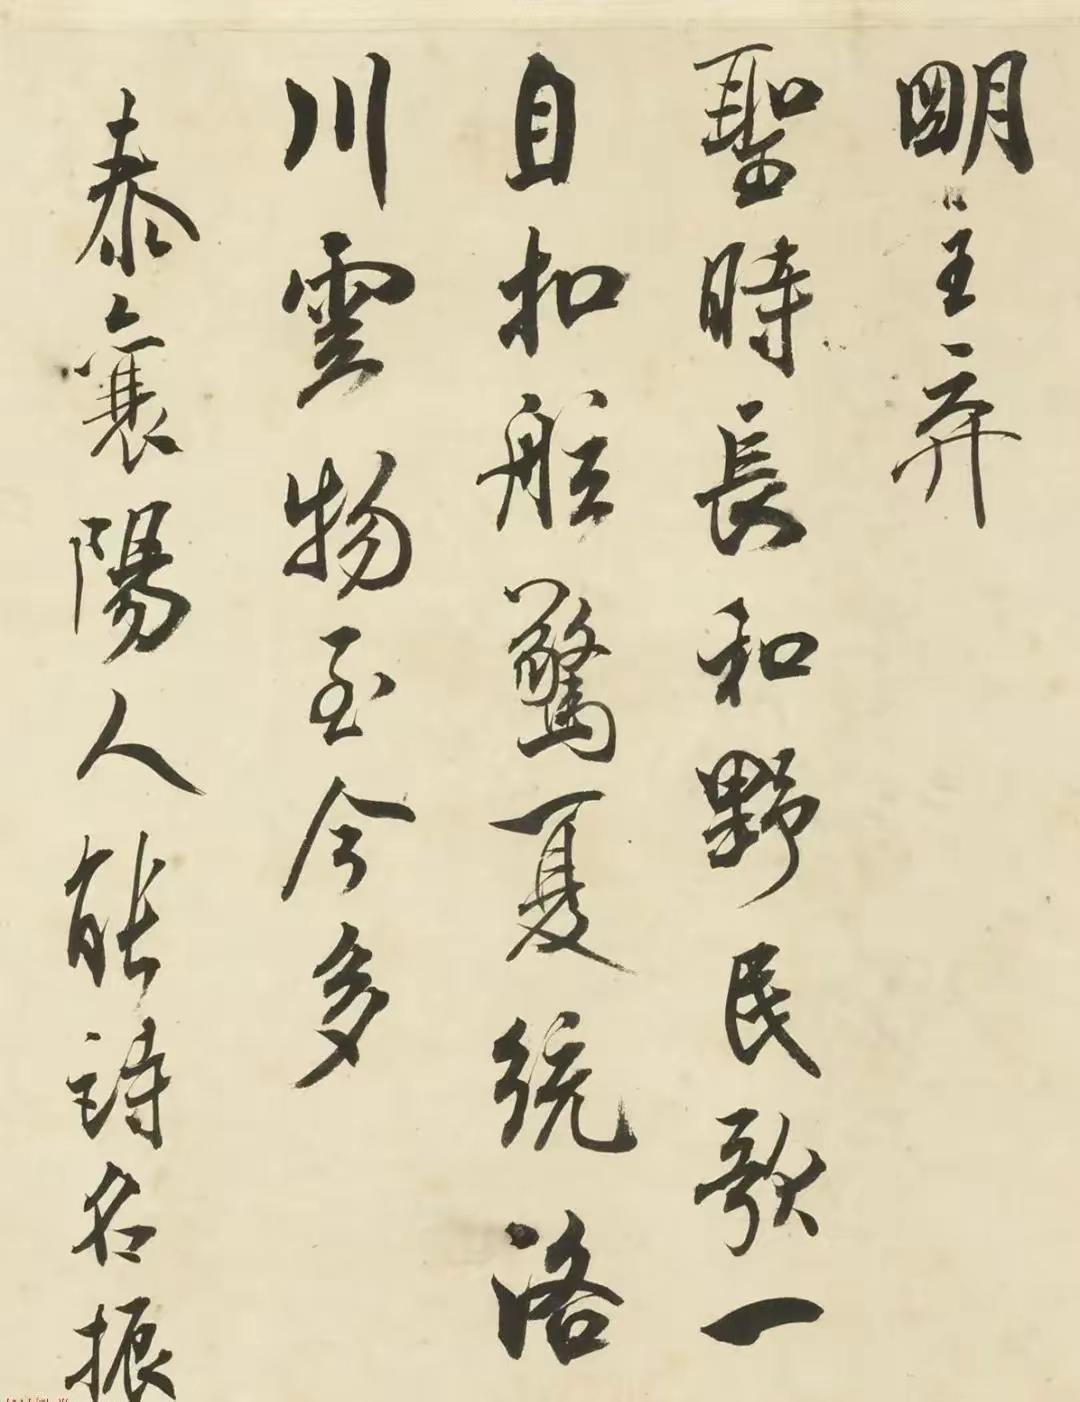 明主弃
聖時長和野民歌一
自扣舷驚夏統洛
川雲物至今多
泰襄陽人能詩名振